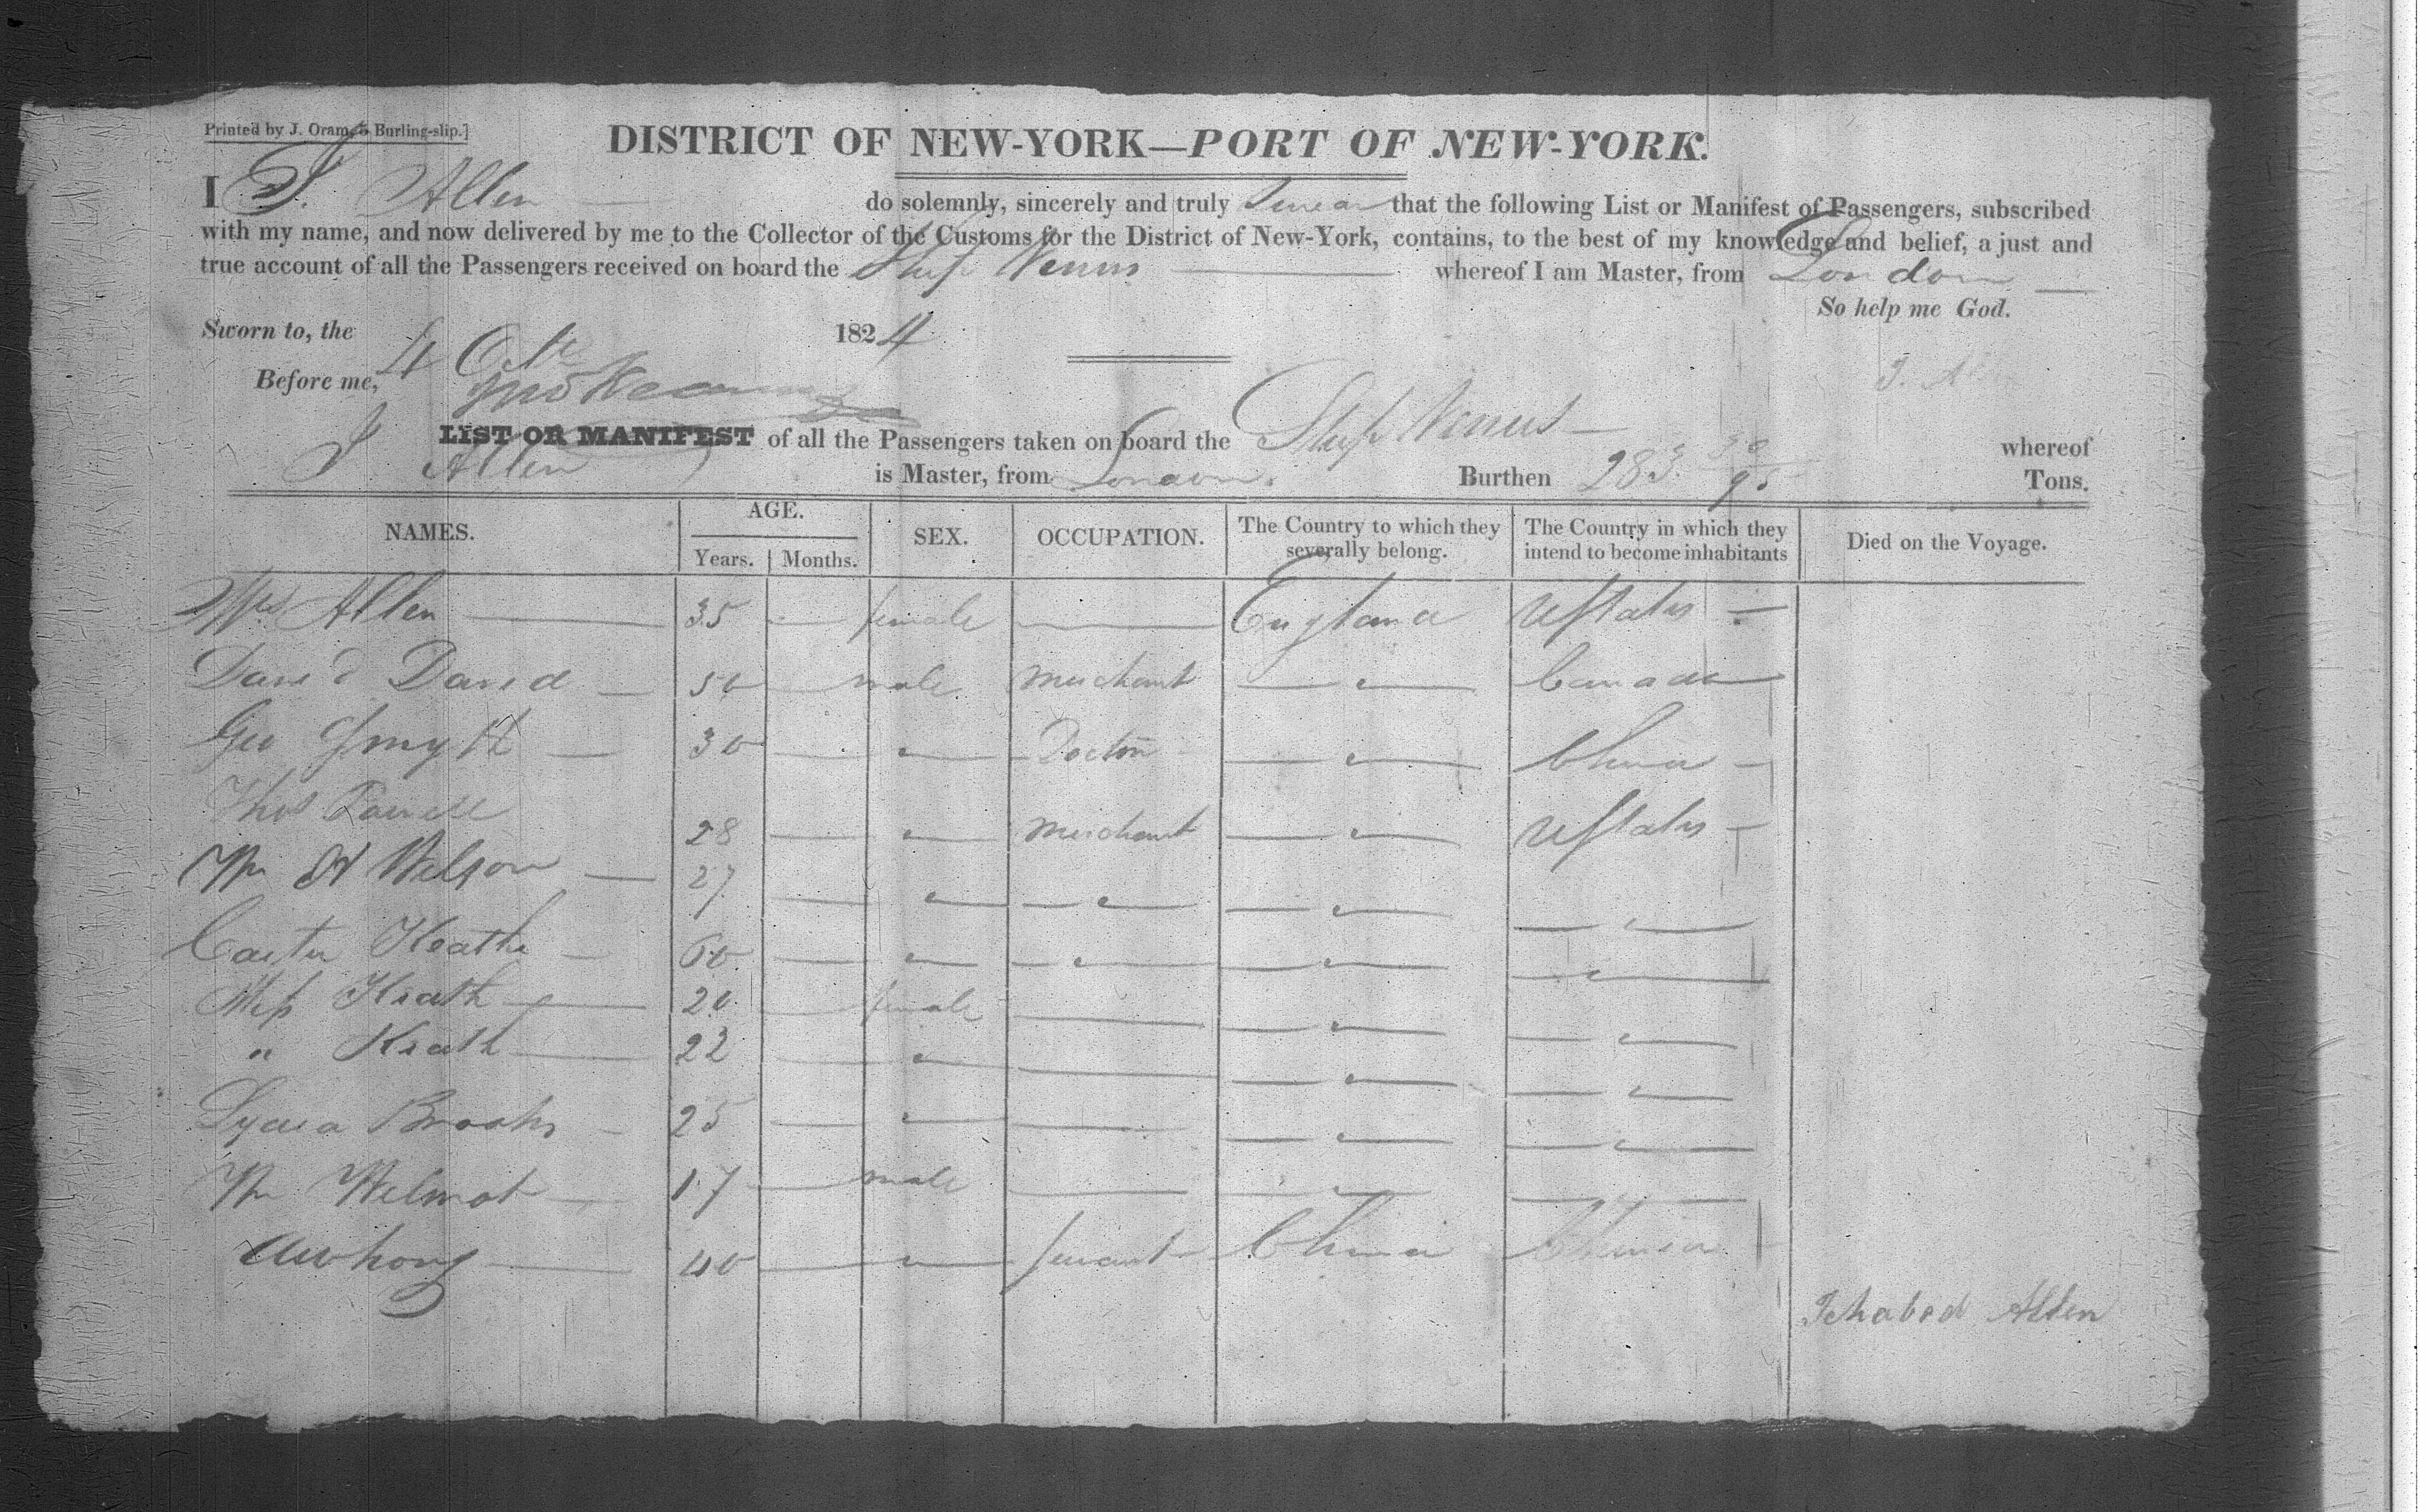 Printed by J. Oram, 5 Burling-slip.]
DISTRICT OF NEW-YORK—PORT OF NEW-YORK.
I I. Allen do solemnly, sincerely and truly swear that the following List or Manifest of Passengers, subscribed
with my name, and now delivered by me to the Collector of the Customs for the District of New-York, contains, to the best of my knowledge and belief, a just and
true account of all the Passengers received on board the Ship Venus whereof I am Master, from London
So help me God.
Sworn to, the 4 Octr 1824
Before me,
I. Allen
LIST OR MANIFEST of all the Passengers taken on board the Ship Venus whereof
I Allen is Master, from London. Burthen 283 30/95 Tons.
NAMES. AGE. SEX. OCCUPATION. The Country to which they severally belong. The Country in which they intend to become inhabitants Died on the Voyage.
Years. Months.
Mrs Allen — 35 — female — England UStates —
David David — 50 — male merchant — " — Canada
Geo Smyth — 30 — " — Doctor — " — China —
Thos 28 — " — merchant — " — UStates —
Wm H Wilson — 27 — " — " — " — " —
Heath — 60 — " — " — " — " —
Miss Heath — 20 — female — " — " —
" Heath — 22 — " — " — " —
Lydia Brooks — 25 — " — " — " —
Wm Wilmot — 17 — male — " — " —
Awhong — 40 — " — servant China China
Ichabod Allen